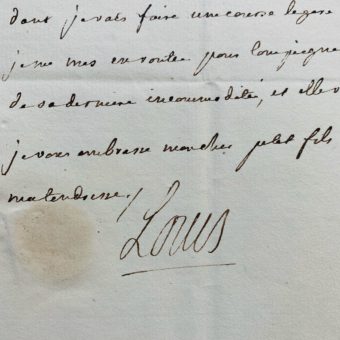 dont je vais faire une course legere
je me mes en routte pour Compiegne
de sa derniere incommodité, et elle v
je vous embrasse mon cher petit fils
ma tendresse /
Louis